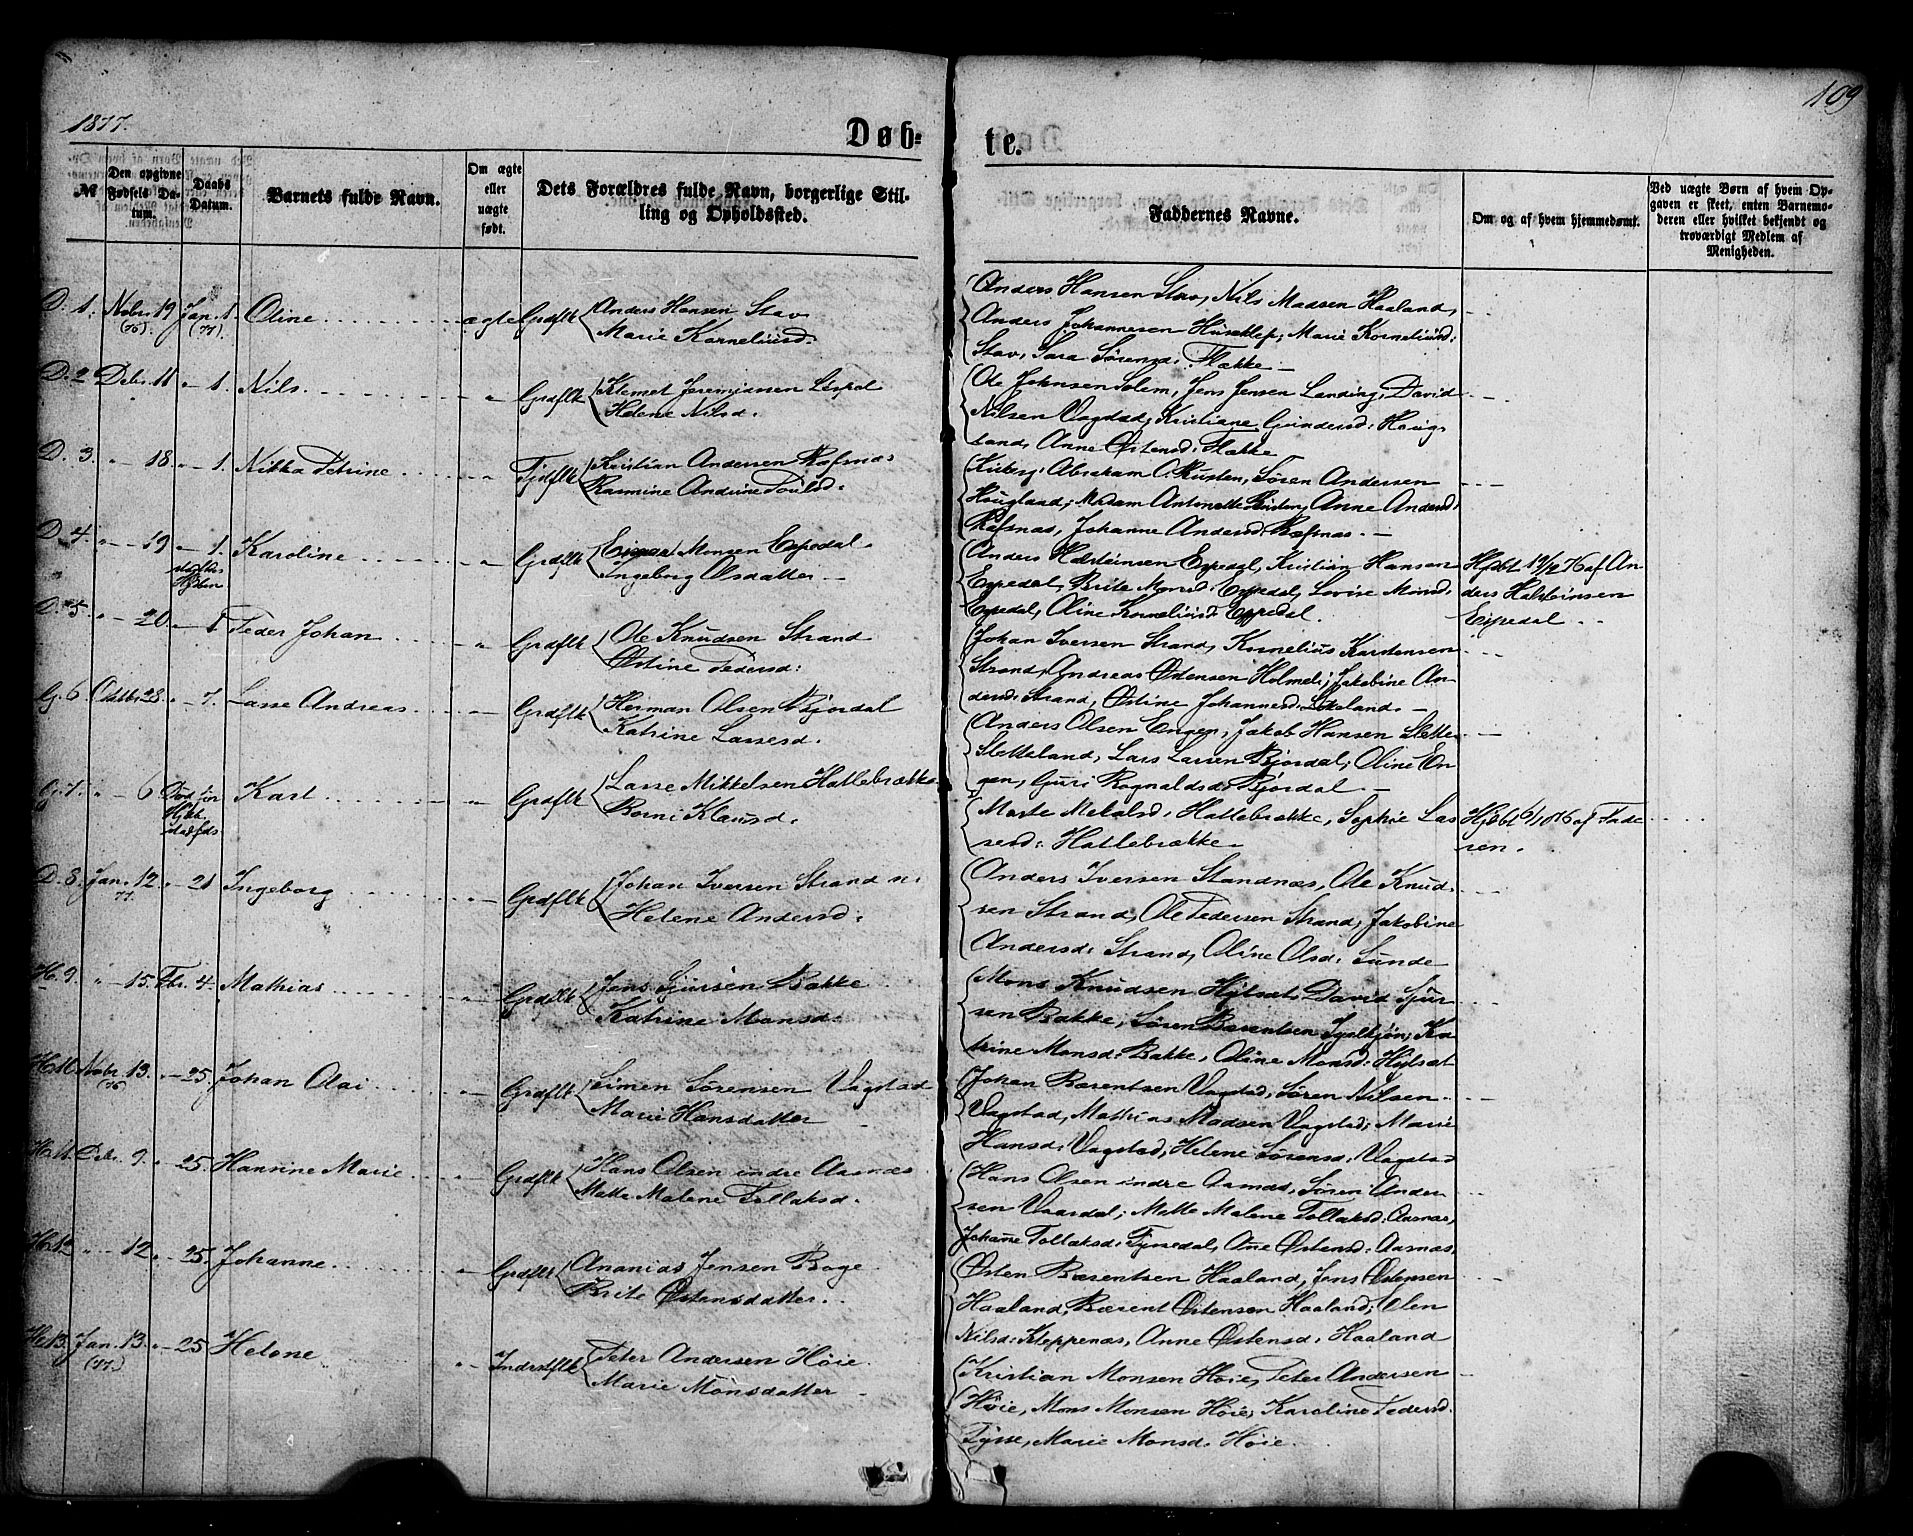 1877.
109
Døb-
te.
№
Den opgivne Fødsels Datum.
Daabs Datum.
Barnets fulde Navn.
Om ægte eller uægte født.
Dets Forældres fulde Navn, borgerlige Stilling og Opholdssted.
Faddernes Navne.
Om og af hvem hjemmedøbt.
Ved uægte Børn af hvem Opgaven er skeet, enten Barnemoderen eller hvilket bekjendt og troværdigt Medlem af Menigheden.
D. 1. Nobr. 19 (76). Jan. 1. (77). Oline ægte Grdflk Anders Hansen Stav
Marie Korneliusd.
Anders Hansen Stav, Nils Madsen Haaland,
Anders Johannesen Huseklep; Marie Korneliusd:
Stav, Sara Sørensd: Flække
D. 2 Debr. 11 " 1. Nils. " Grdflk Klemet Jeremiassen
Helene Nilsd.
Ole Johnsen Solem, Jens Jensen Landing, David
Nilsen Vagstad, Kristiane Gundersd: Houg-
land, Anne Østensd: Flække
D. 3. " 18. " 1. Nikka Petrine " Kristian Andersen Rafsnæs
Rasmine Andrine Poulsd:
Kirkesg: Abraham O. Rusten, Søren Andersen
Hougland; Madam Antonette Rusten, Anne Andersd:
Rafsnæs, Johanne Andersd: Rafsnæs.
D. 4. " 19 " 1. Karoline " Grdflk Monsen Espedal.
Ingeborg Olsdatter
Anders Halsteinsen Espedal, Kristian Hansen
Espedal, Brite Monsd: Espedal, Lovise Monsd:
Espedal, Oline Korneliusd: Espedal.
Hjdbt 19/12 76 af An-
ders Halsteinsen
Espedal
D. 5. " 20. " 1 Peder Johan " Grdflk Ole Knudsen Strand
Østine Pedersd:
Johan Iversen Strand, Kornelius Karstensen
Strand, Andreas Østensen Holmel; Jakobine An-
dersd: Strand, Østine Johannesd:
G. 6 Octbr. 28. " 7. Lasse Andreas " Grdflk Herman Olsen Bjordal
Katrine Lassesd.
Anders Olsen Engen, Jakob Hansen Slette
Sletteland, Lars Larsen Bjordal, Oline En-
gen, Guri Rognaldsd: Bjordal.
G. 7. " 6 Karl " Grdflk Lasse Mikkelsen Hatlebrække
Borni Klausd.
Marte Mekalsd: Hatlebrække, Sophie Las-
sesd: Hatlebrække
af Fade-
ren.
D. 8. Jan. 12. 77. " 21 Ingeborg " Grdflk Johan Iversen Strand n.
Helene Andersd:
Anders Iversen Standnæs, Ole Knud-
sen Strand, Ole Pedersen Strand, Jakobine
Andersd: Strand, Oline Olsd: Sunde
H. 9. " 15. Fbr. 4. Mathias " Grdflk Jens Sjursen Bakke
Katrine Monsd:
Mons Knudsen Hjelset, David Sjur-
sen Bakke, Søren Bærentsen; Ka-
trine Monsd: Bakke, Oline Monsd: Hjelset
H. 10. Nobr. 13. (76) " 25. Johan Olai " Grdflk Simen Sørensen Vagstad
Marie Hansdatter
Johan Bærentsen Vagstad, Søren Nilsen
Vagstad, Mathias Madsen Vagstad; Marie
Hansd: Vagstad, Helene Sørensd: Vagstad
H. 11. Debr. 9. " 25. Hansine Marie " Grdflk Hans Olsen indre Aasnæs
Mette Malene Tollaksd.
Hans Olsen indre Aasnæs, Søren Ander-
sen Vaardal; Mette Malene Tollaksd: Aasnæs,
Johanne Tollaksd: Tyssedal, Ane Østensd: Aasnæs.
H. 12 " 12. " 25. Johanne. " Grdflk Ananias Jensen Boge.
Brite Østensdatter.
Østen Bærentsen Haaland, Jens Østensen
Haaland, Bærent Østensen Haaland; Elen
Nilsd: Kleppenæs, Anne Østensd: Haaland
H. 13. Jan. 13. (77.) " 25 Helene " Indrstflk Peter Andersen Høie.
Marie Monsdatter
Kristian Monsen Høie, Peter Andersen
Høie, Mons Monsen Høie; Karoline Pedersd.
Tysse, Marie Monsd: Høie.